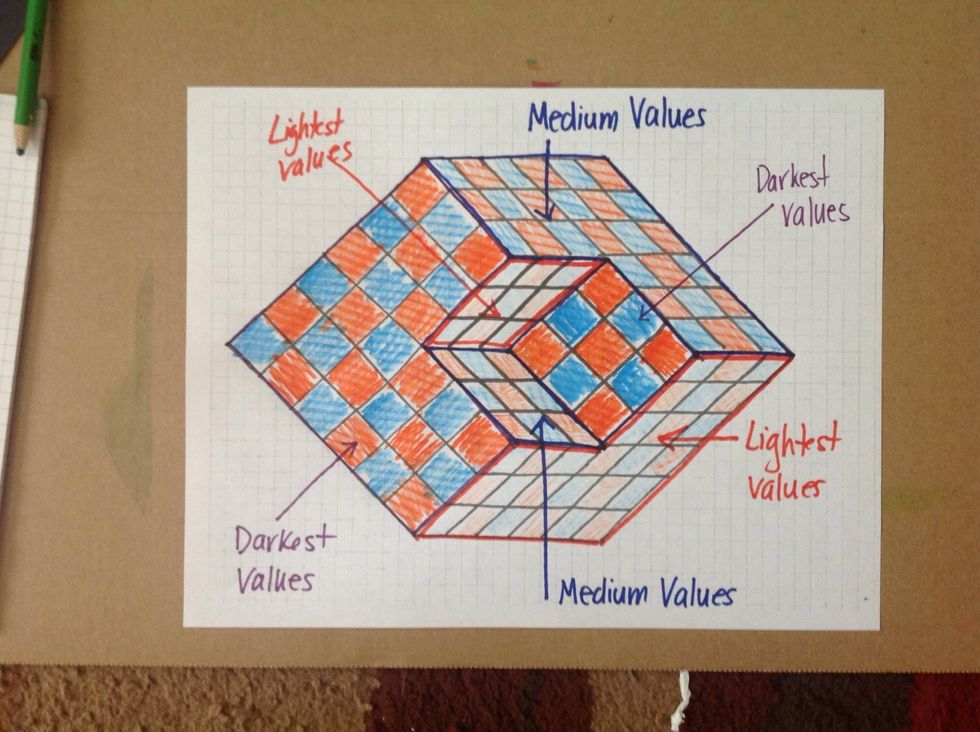 Medium Values
Lightest
values
Darkest
values
Lightest
values
Darkest
values
Medium Values